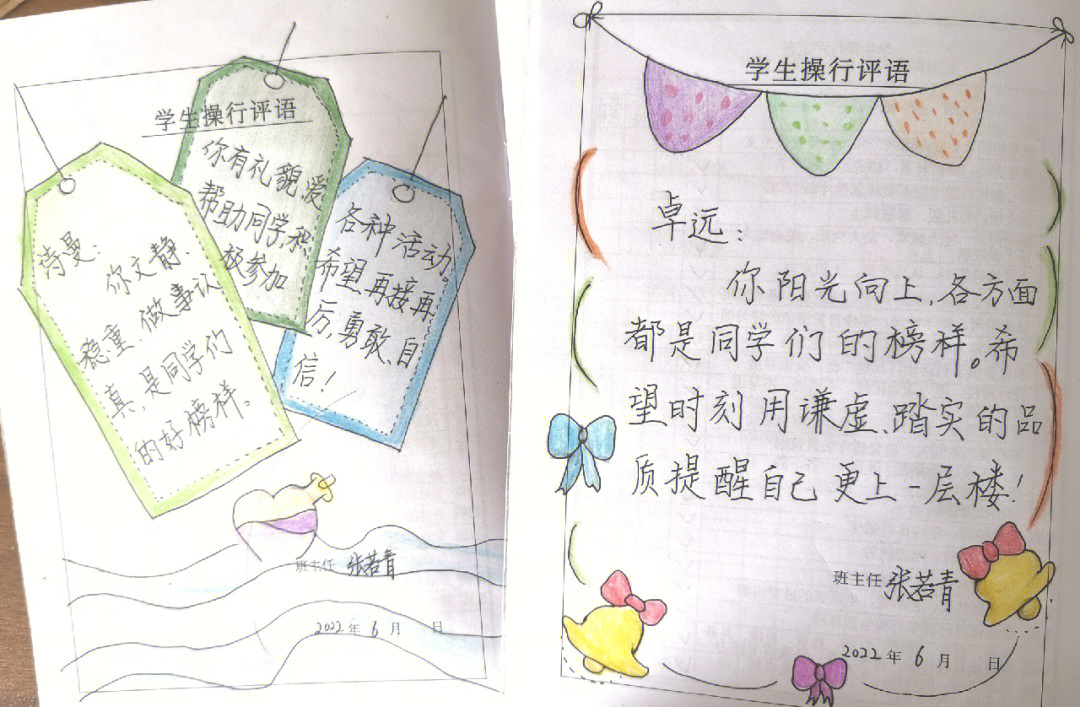 学生操行评语
诗曼：
你文静、
稳重、做事认
真，是同学们
的好榜样。
你有礼貌，爱
帮助同学，积
极参加
各种活动。
希望再接再
厉，勇敢、自
信！
班主任 张若青
2022年6月 日
学生操行评语
卓远：
你阳光向上，各方面
都是同学们的榜样。希
望时刻用谦虚、踏实的品
质提醒自己更上一层楼！
班主任 张若青
2022年6月 日